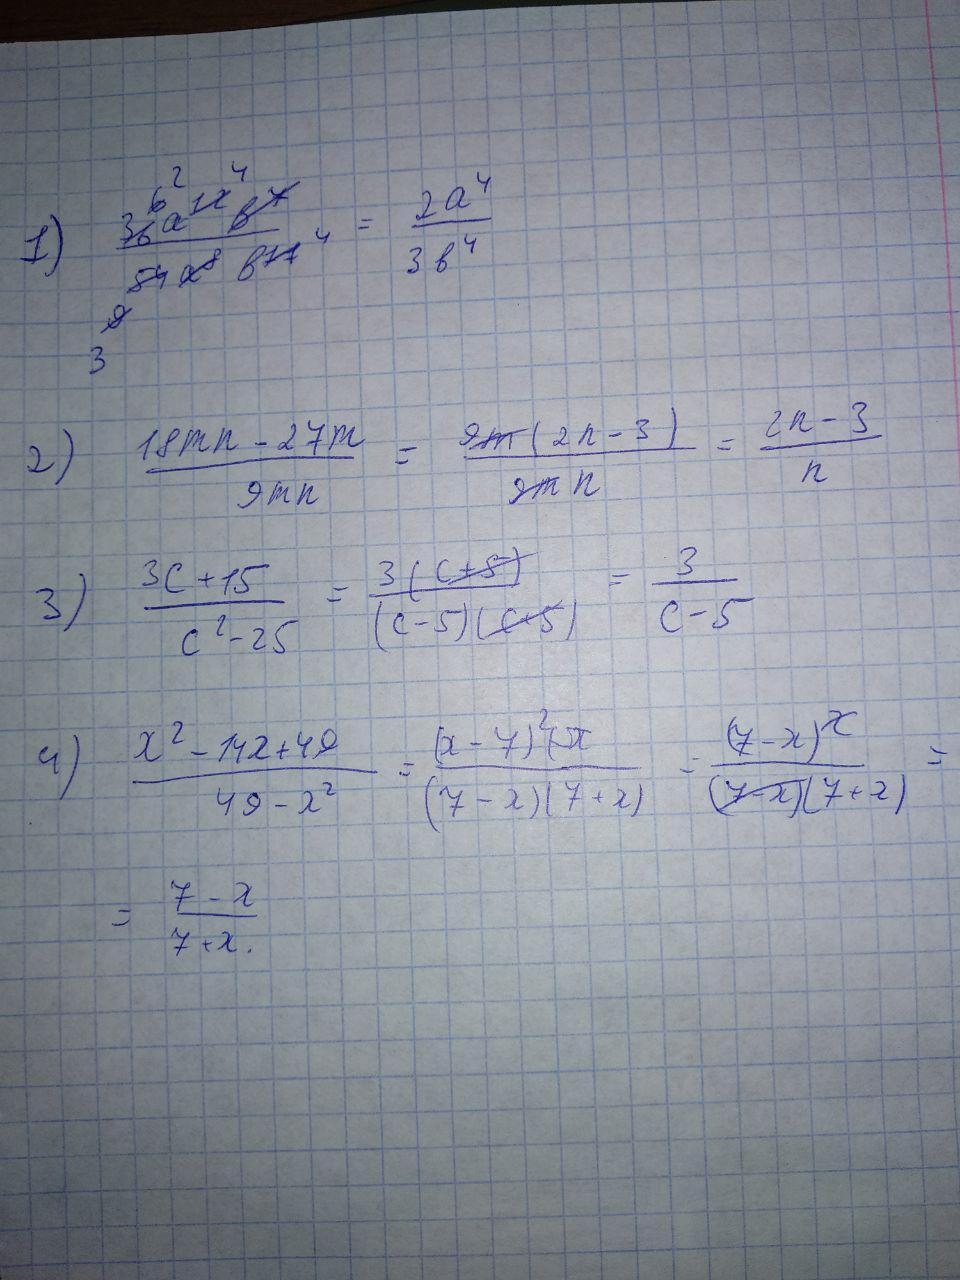 1) 36a¹²в⁷ / 54a⁸в¹¹ = 2a⁴ / 3в⁴
6 2 4 4 9 3
2) 18mn - 27m / 9mn = 9m(2n - 3) / 9mn = 2n - 3 / n
3) 3c + 15 / c² - 25 = 3(c + 5) / (c - 5)(c + 5) = 3 / c - 5
4) x² - 14x + 49 / 49 - x² = (x - 7)² / (7 - x)(7 + x) = (7 - x) / (7 - x)(7 + x) =
= 7 - x / 7 + x.